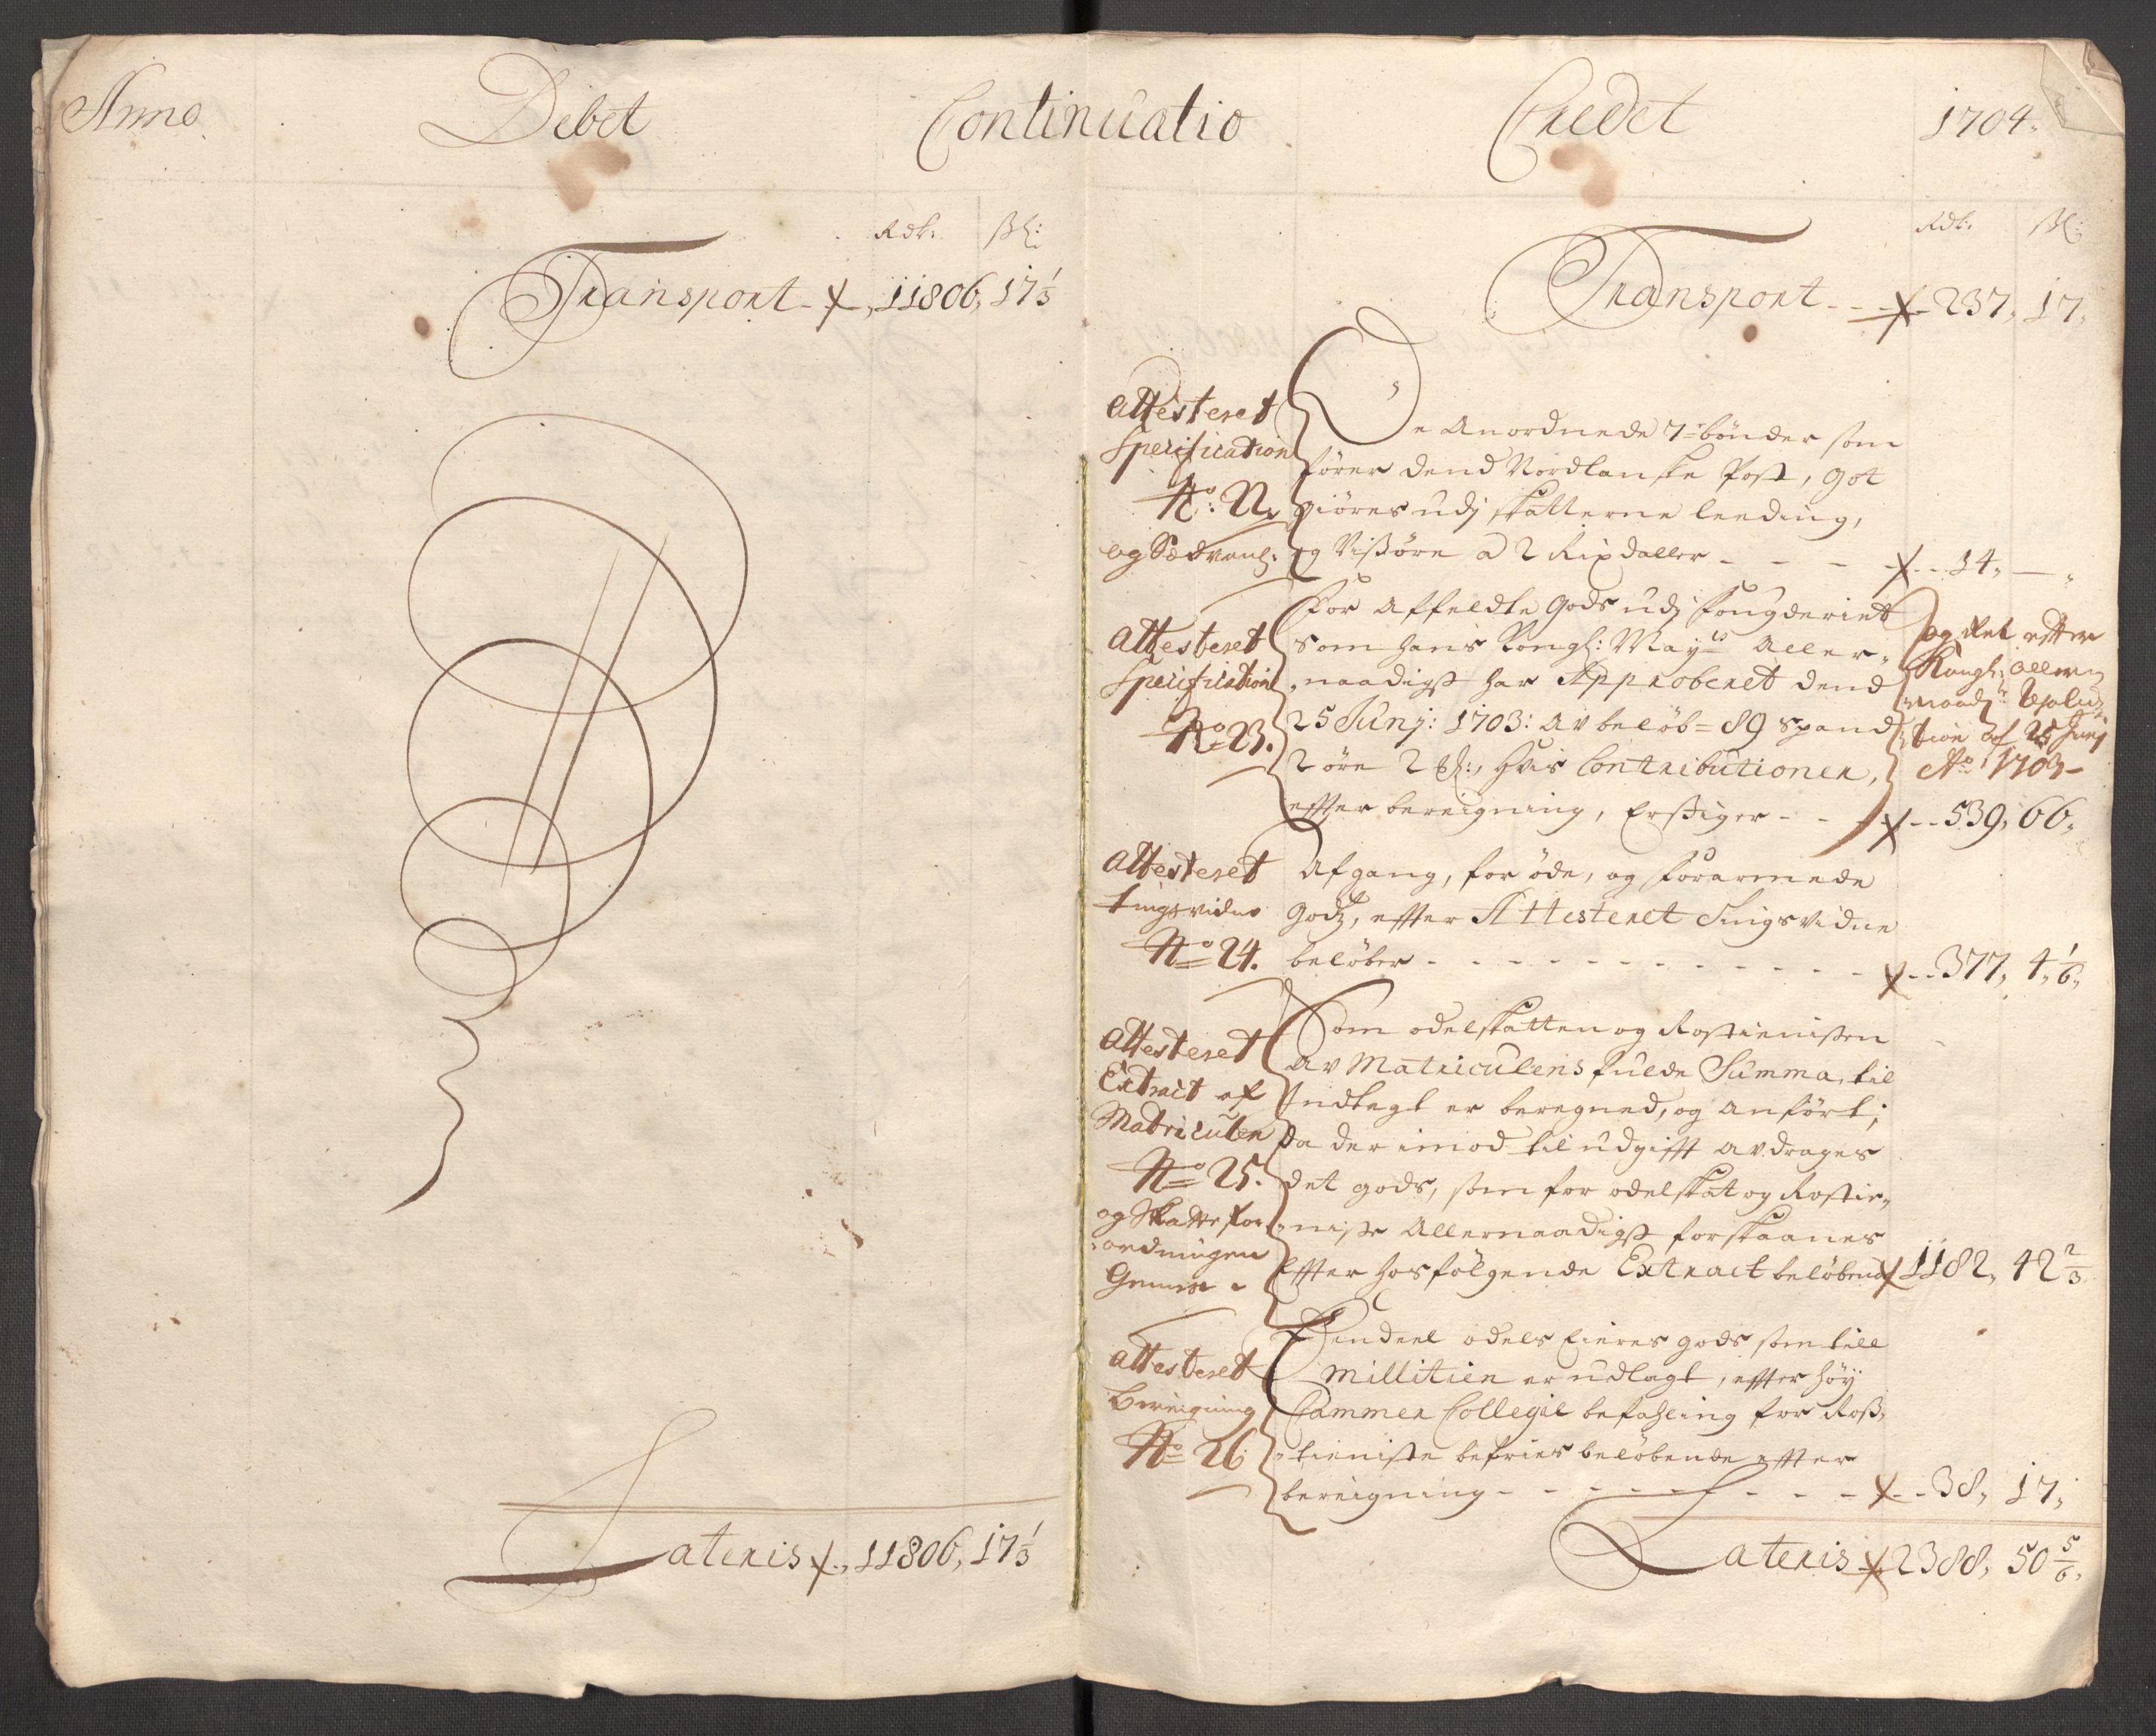 Anno
Debet
Continuatio
Credet
1704.
Rdr: ßl:
Transport - 11806, 17 1/3
Lateris 11806, 17 1/3
Rdr: ßl:
Transport - - 237, 17,
Attesteret
Specification
No: 22.
og Sædvanl:
De Anordnede 7 bønder som
fører dend Nordlanske Post, got
giøres udj skatterne leeding,
og Vissøre a 2 Rixdaller - - - 14, —
Attesteret
Specification
No 23.
For Affeldte Gods udj Fougderiet
som hans Kongl: Mayts Aller-
naadigst har Approberet dend
25 Junj: 1703: av beløb = 89 spand
2 øre 2 , hvis Contributioner,
effter bereigning, Erstiger - - - 539, 66,
og det efter
Kongl: Aller
naad: Resolu
tion af 25 Junj
Ao 1703 -
Attesteret
tingsvidne
No 24.
Afgang, for øde, og forarmede
Godz, effter Attesteret Tingsvidne
beløber - - - 377, 4 1/6,
Attesteret
Extract af
Matriculen
No 25.
og Skattefor-
ordningen
Som odelskatten og Rostienisten
av Matriculens fulde Summa, til
Indtegt er beregned, og anført;
Da der imod til udgifft avdrages
det gods, som for odelskat og Rostie-
niste Allernaadigst forskaanes
Effter hosfølgende Extract beløbende 1182, 42 2/3
Attesteret
bereigning
No 26
Eendeel odels Eieres gods som till
Millitien er udlagt, effter høy
Cammer Collegie befahling for Ross-
tieniste befries beløbende effter
bereigning - - - 38, 17,
Lateris 2388, 50 5/6,